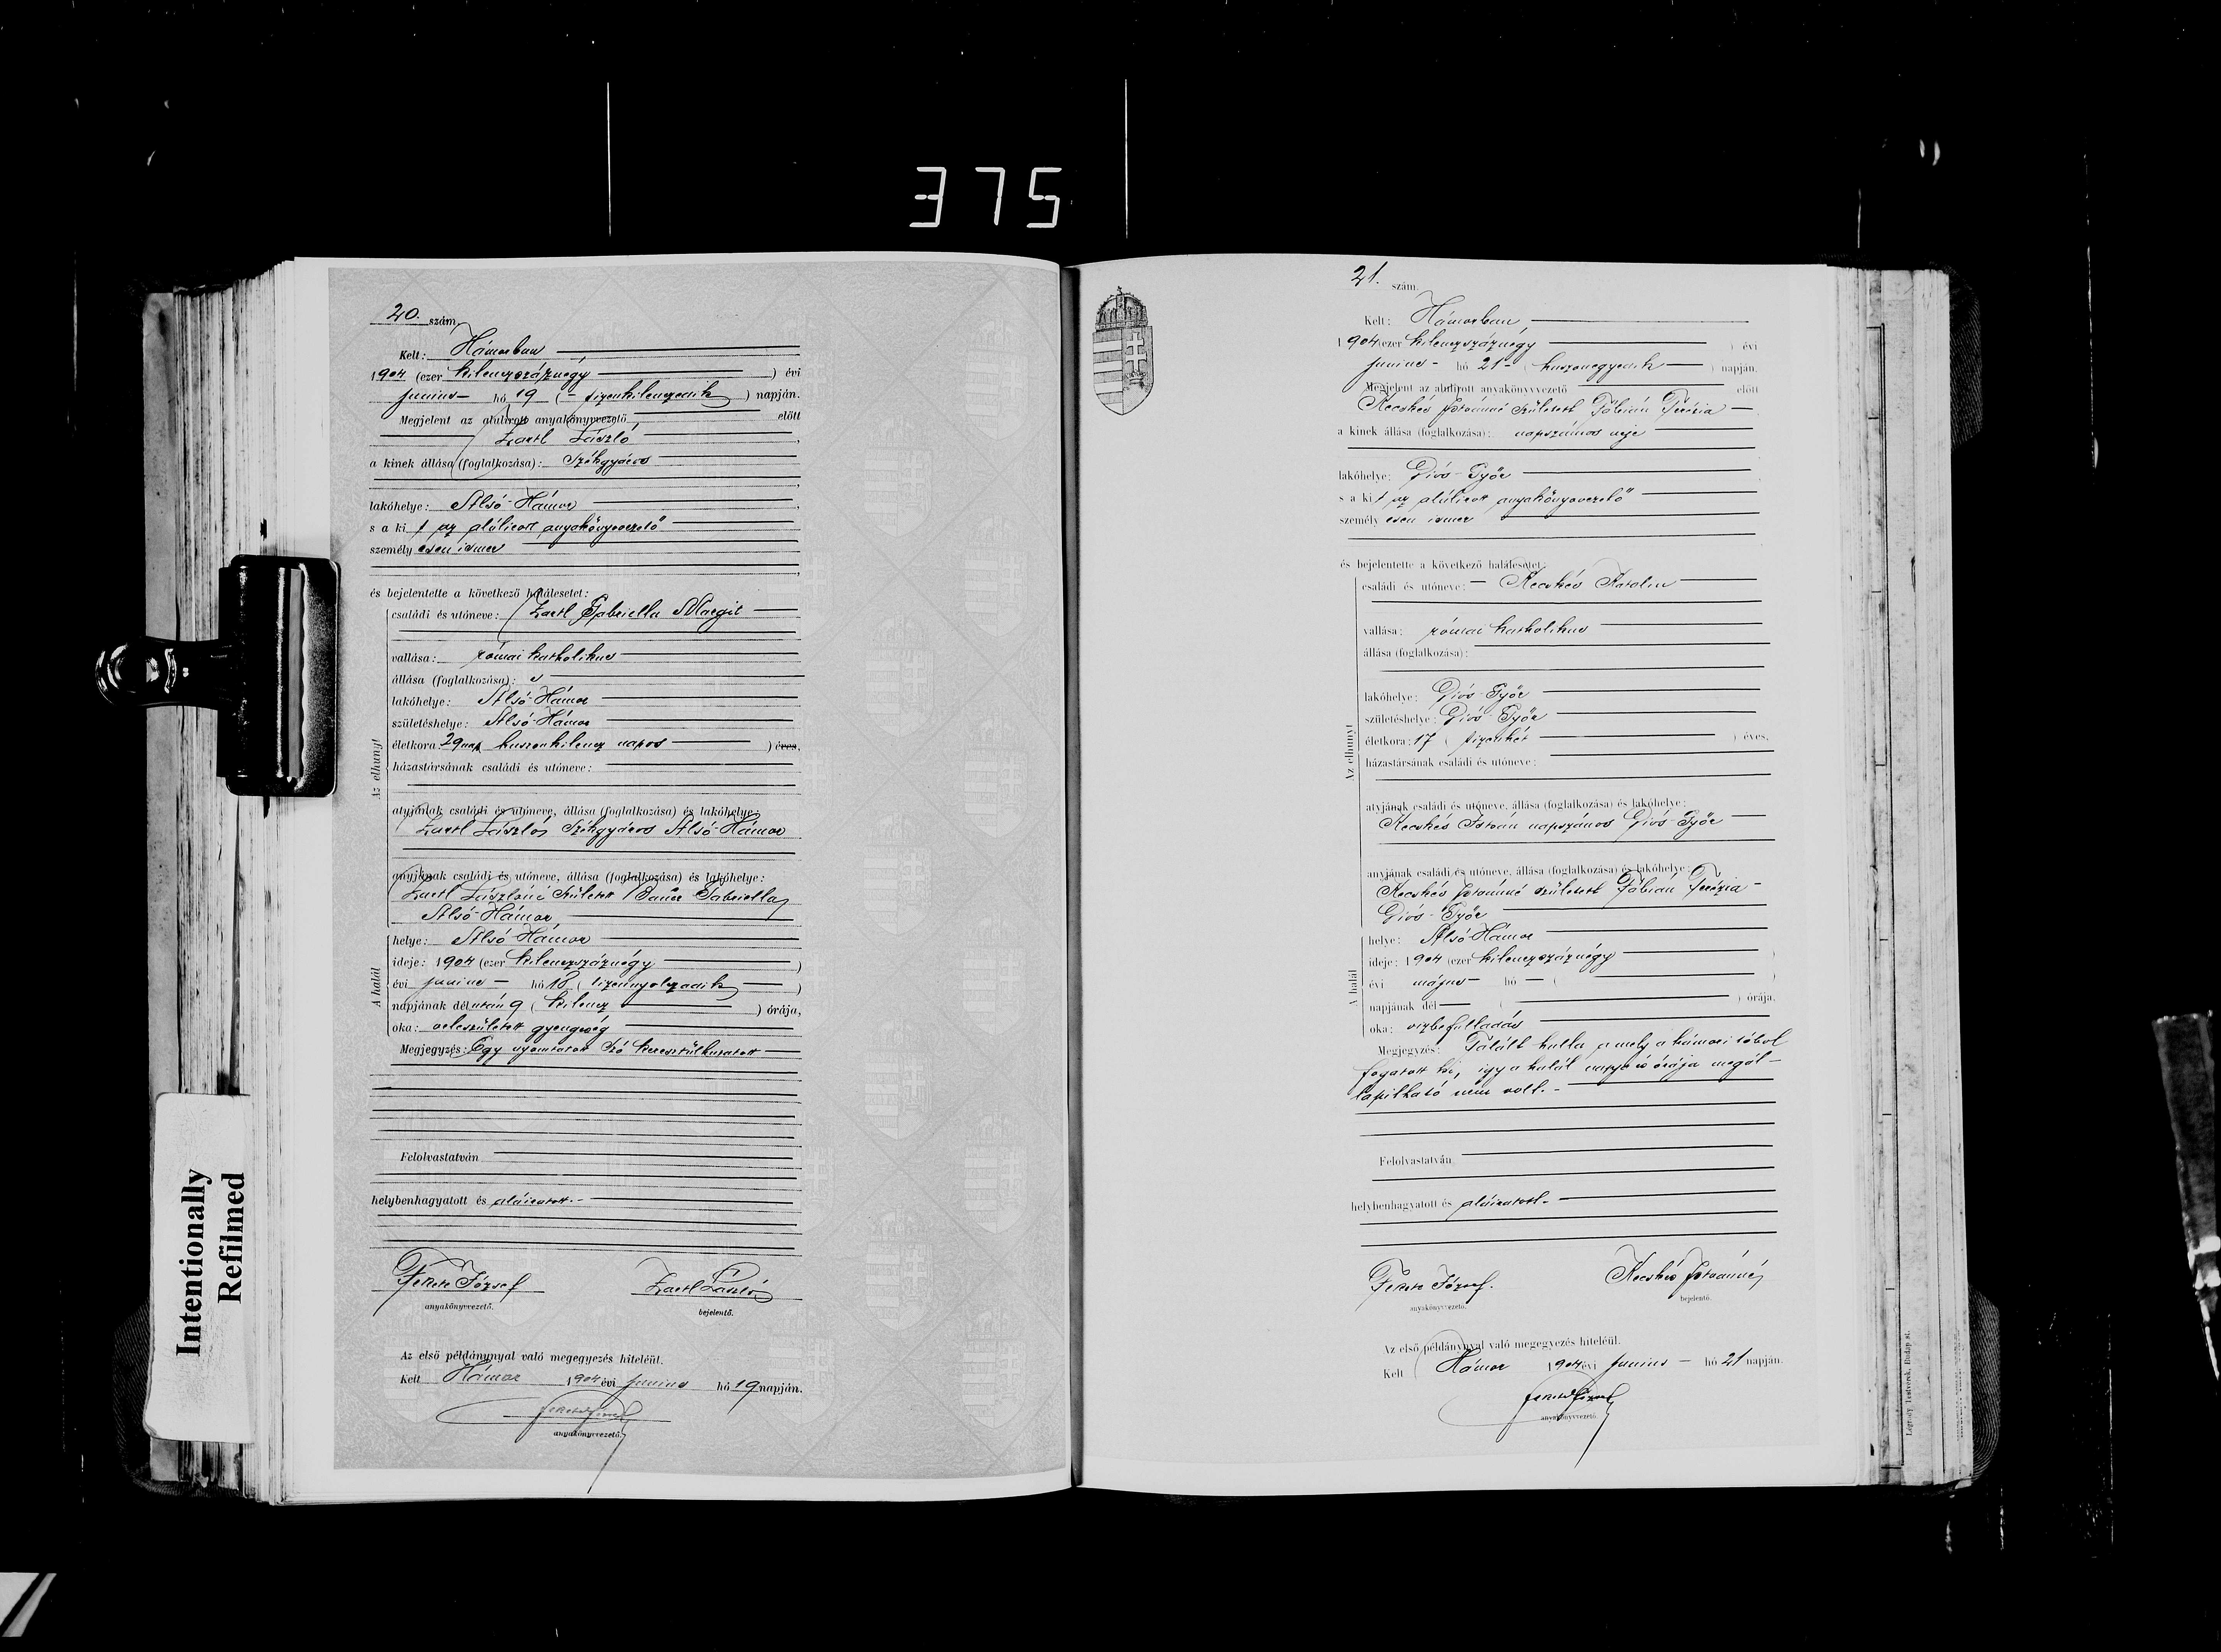 375
20. szám.
Kelt: Hámorban
1904 (ezer kilenczszáznégy ) évi
junius hó 19 (tizenkilenczedik ) napján.
Megjelent az alulirott anyakönyvvezető előtt
Zartl László,
a kinek állása (foglalkozása): Széhgyáros
lakóhelye: Alsó-Hámor,
s a ki t az alólirott anyakönyvvezető
személy esen ismer
és bejelentette a következő halálesetet:
Az elhunyt
családi és utóneve: Zartl Gabriella Margit
vallása: római katholikus
állása (foglalkozása):
lakóhelye: Alsó-Hámor
születéshelye: Alsó-Hámor
életkora: 29 nap huszonkilencz napos ) éves,
házastársának családi és utóneve:
atyjának családi és utóneve, állása (foglalkozása) és lakóhelye:
Zartl László Széhgyáros Alsó-Hámor
anyjának családi és utóneve, állása (foglalkozása) és lakóhelye:
Zartl Lászlóné született Bauer Gabriella
Alsó-Hámor
A halál
helye: Alsó-Hámor
ideje: 1904 (ezer kilenczszáznégy )
évi junius hó 18 (tizennyolczadik )
napjának dél után 9 ( kilencz ) órája,
oka: veleszületett gyengeség
Megjegyzés: Egy nyomtatott szó keresztülhuzatott
Felolvastatván
helybenhagyatott és aláiratott.
Fekete József
anyakönyvvezető.
Zartl László
bejelentő.
Az első példánynyal való megegyezés hiteléül.
Kelt Hámor 1904 évi junius hó 19 napján.
Fekete József
anyakönyvvezető.
21. szám.
Kelt: Hámorban
1904 (ezer kilenczszáznégy ) évi
junius hó 21 ( huszonegyedik ) napján.
Megjelent az alulirott anyakönyvvezető előtt
Kecskés Istvánné született Fábián Terézia
a kinek állása (foglalkozása): napszámos neje
lakóhelye: Diós-Győr
s a ki t az alólirott anyakönyvvezető
személy esen ismer
és bejelentette a következő halálesetet:
Az elhunyt
családi és utóneve: Kecskés Katalin
vallása: római katholikus
állása (foglalkozása):
lakóhelye: Diós-Győr
születéshelye: Diós-Győr
életkora: 17 ( tizenhét ) éves,
házastársának családi és utóneve:
atyjának családi és utóneve, állása (foglalkozása) és lakóhelye:
Kecskés István napszámos Diós-Győr
anyjának családi és utóneve, állása (foglalkozása) és lakóhelye:
Kecskés Istvánné született Fábián Terézia
Diós-Győr
A halál
helye: Alsó-Hámor
ideje: 1904 (ezer kilenczszáznégy )
évi május hó ( )
napjának dél ( ) órája,
oka: vizbefulladás
Megjegyzés: Talált hulla, a mely a hámori tóbol
fogatott ki, igy a halál napja és órája megál-
lapitható nem volt.
Felolvastatván,
helybenhagyatott és aláiratott.
Fekete József.
anyakönyvvezető.
Kecskés Istvánné
bejelentő.
Az első példánynyal való megegyezés hiteléül.
Kelt Hámor 1904 évi junius hó 21 napján.
Fekete József
anyakönyvvezető
Intentionally
Refilmed
Légrády Testvérek, Budapest.